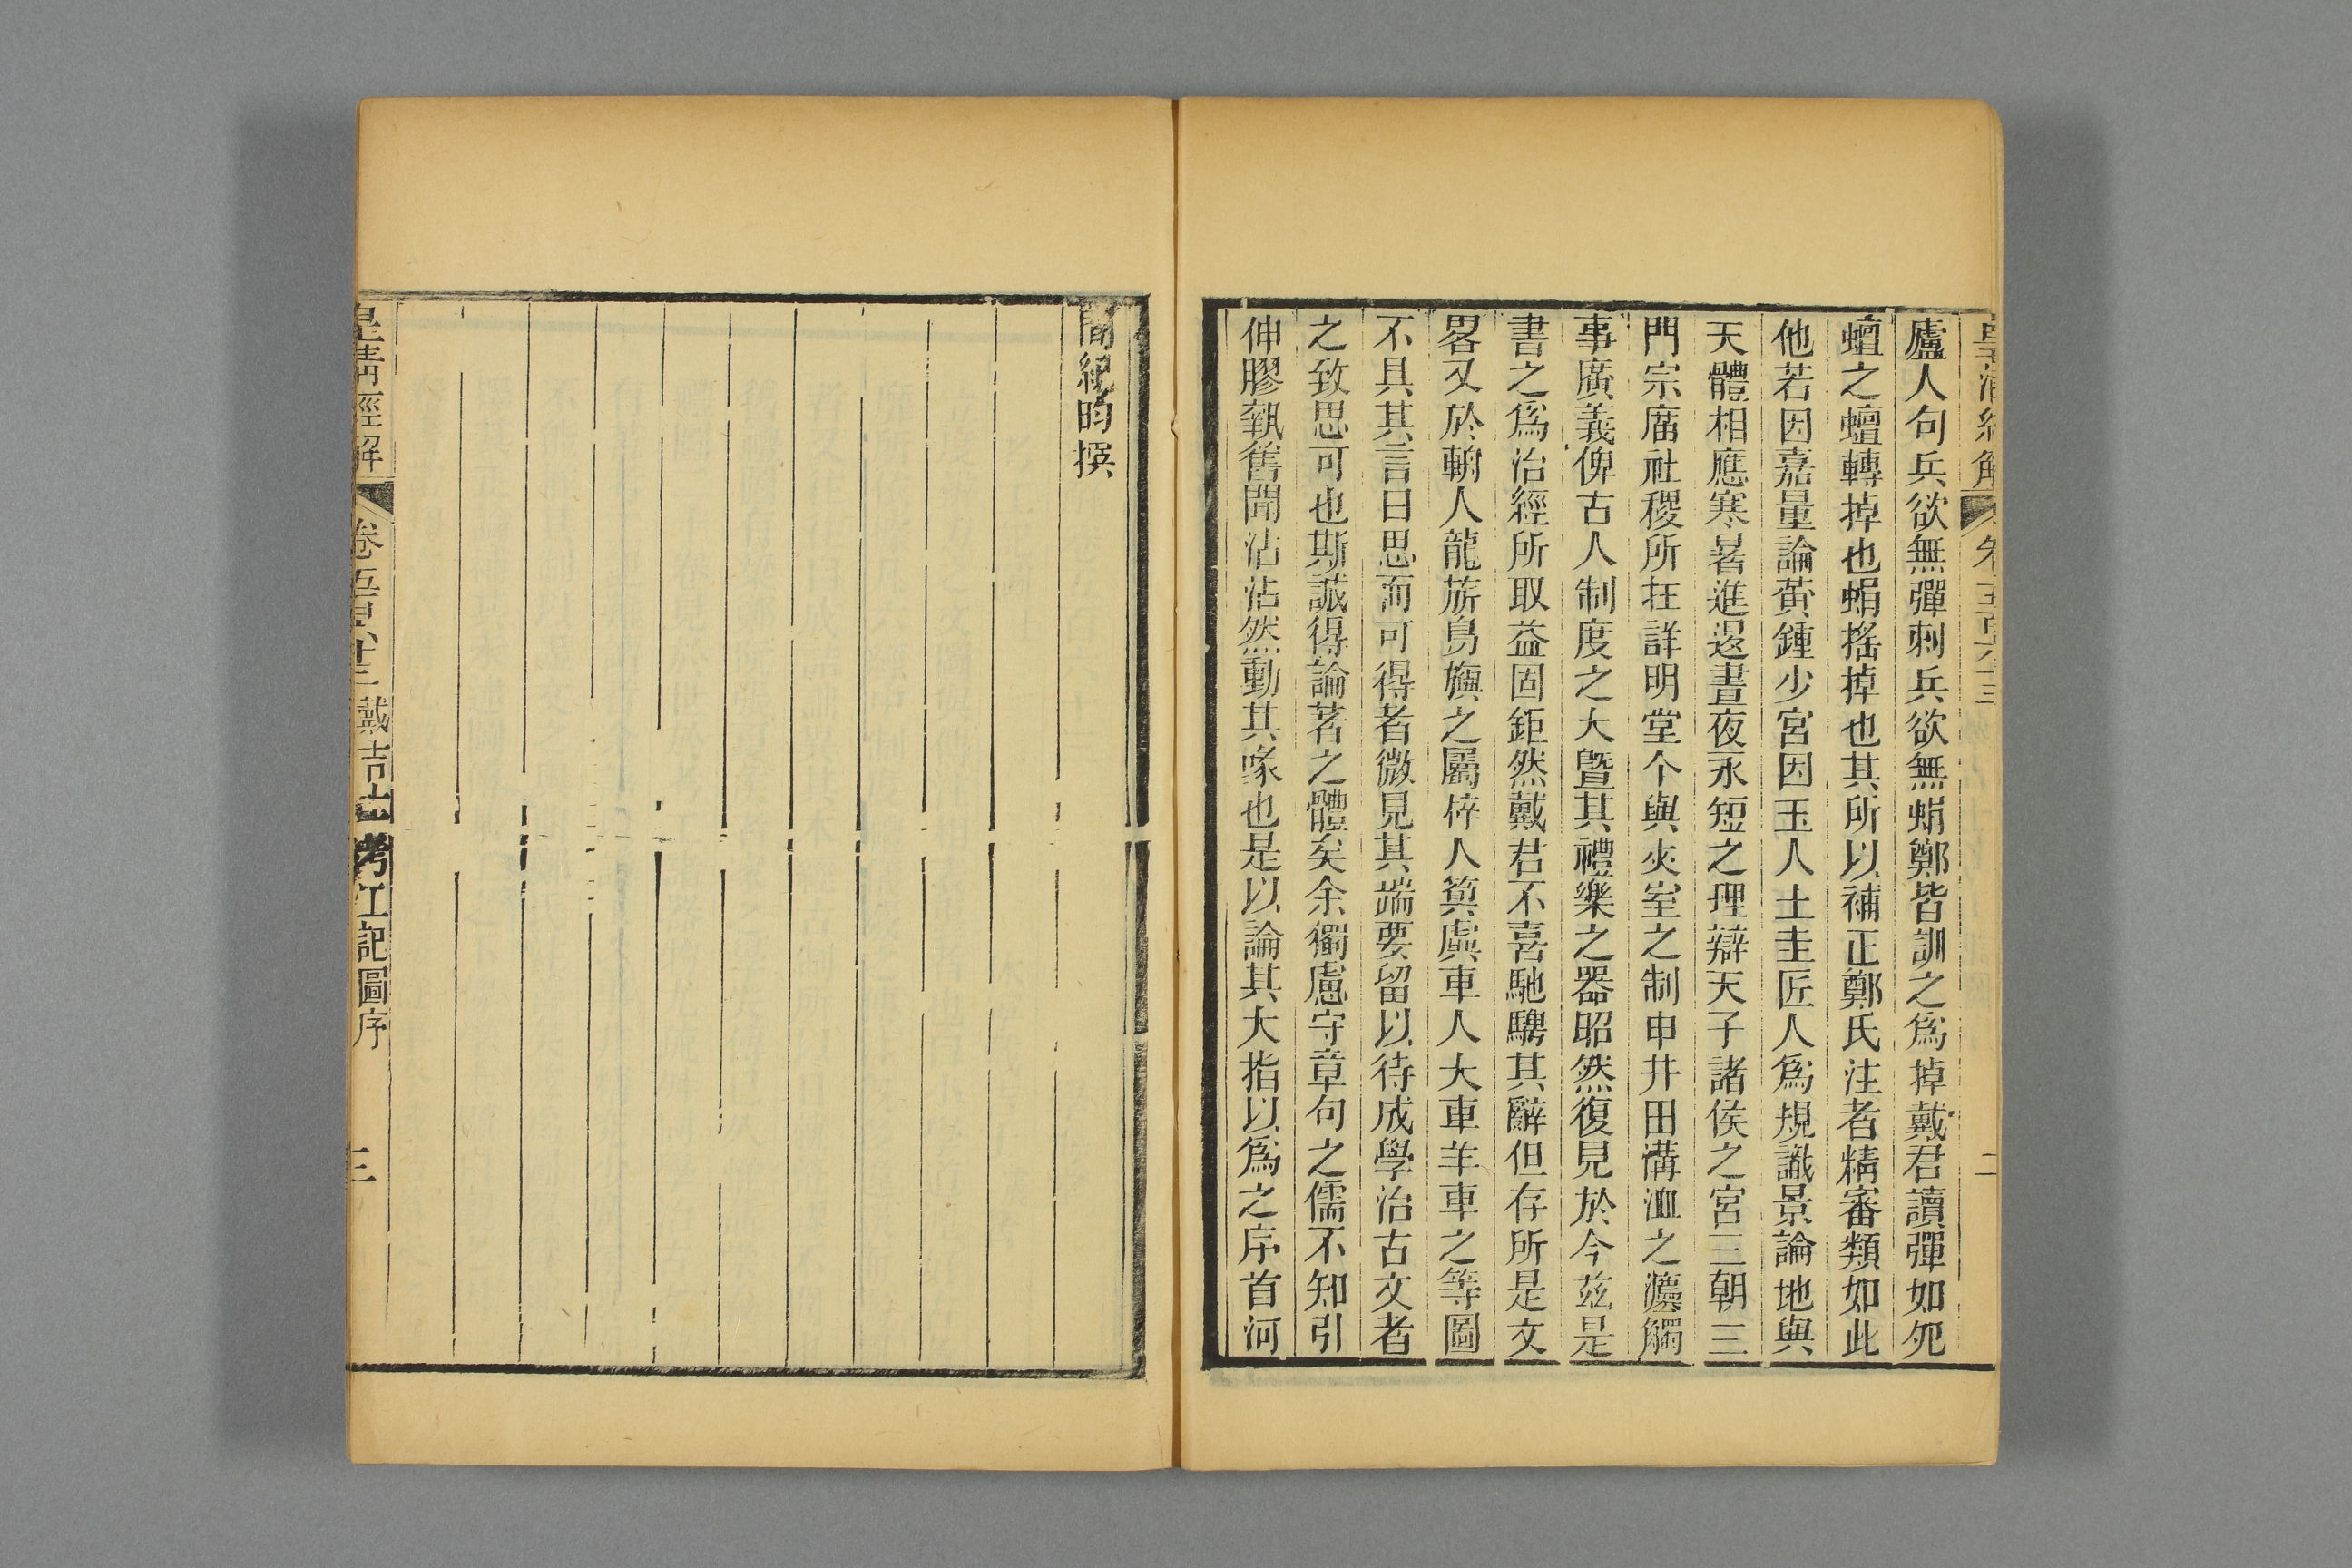 廬人句兵欲無彈刺兵欲無蜎鄭皆訓之爲掉戴君讀彈如夗
蟺之蟺轉掉也蜎搖掉也其所以補正鄭氏注者精審類如此
他若因嘉量論黃鍾少宮因玉人土圭匠人爲規識景論地與
天體相應寒暑進退晝夜永短之理辯天子諸侯之宮三朝三
門宗廟社稷所在詳明堂个與夾室之制申井田溝洫之灋觸
事廣義俾古人制度之大曁其禮樂之器昭然復見於今茲是
書之爲治經所取益固鉅然戴君不喜馳騁其辭但存所是文
畧又於輈人龍旂鳥旟之屬梓人筍虡車人大車羊車之等圖
不具其言曰思而可得者微見其端要留以待成學治古文者
之致思可也斯誠得論著之體矣余獨慮守章句之儒不知引
伸膠執舊聞沾沾然動其喙也是以論其大指以爲之序首河
間紀昀撰
皇淸經解 卷五百六十三 戴吉士考工記圖序 三